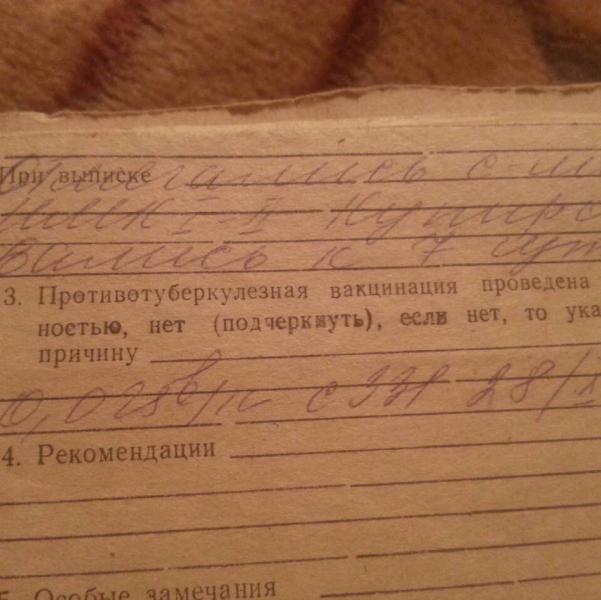 При выписке отмечались с-м
НМК I-II Купиро
вались к 7 сут
3. Противотуберкулезная вакцинация проведена
ностью, нет (подчеркнуть), если нет, то ука
причину
0,025 в/к с 931 28/
4. Рекомендации
5. Особые замечания